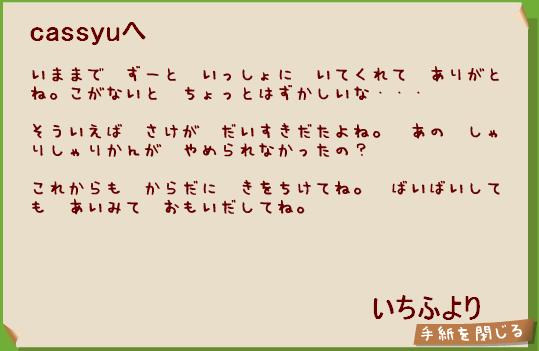 cassyuへ
いままで　ずーと　いっしょに　いてくれて　ありがと
ね。こがないと　ちょっとはずかしいな・・・
そういえば　さけが　だいすきだたよね。　あの　しゃ
りしゃりかんが　やめられなかったの？
これからも　からだに　きをちけてね。　ばいばいして
も　あいみて　おもいだしてね。
いちふより
手紙を閉じる